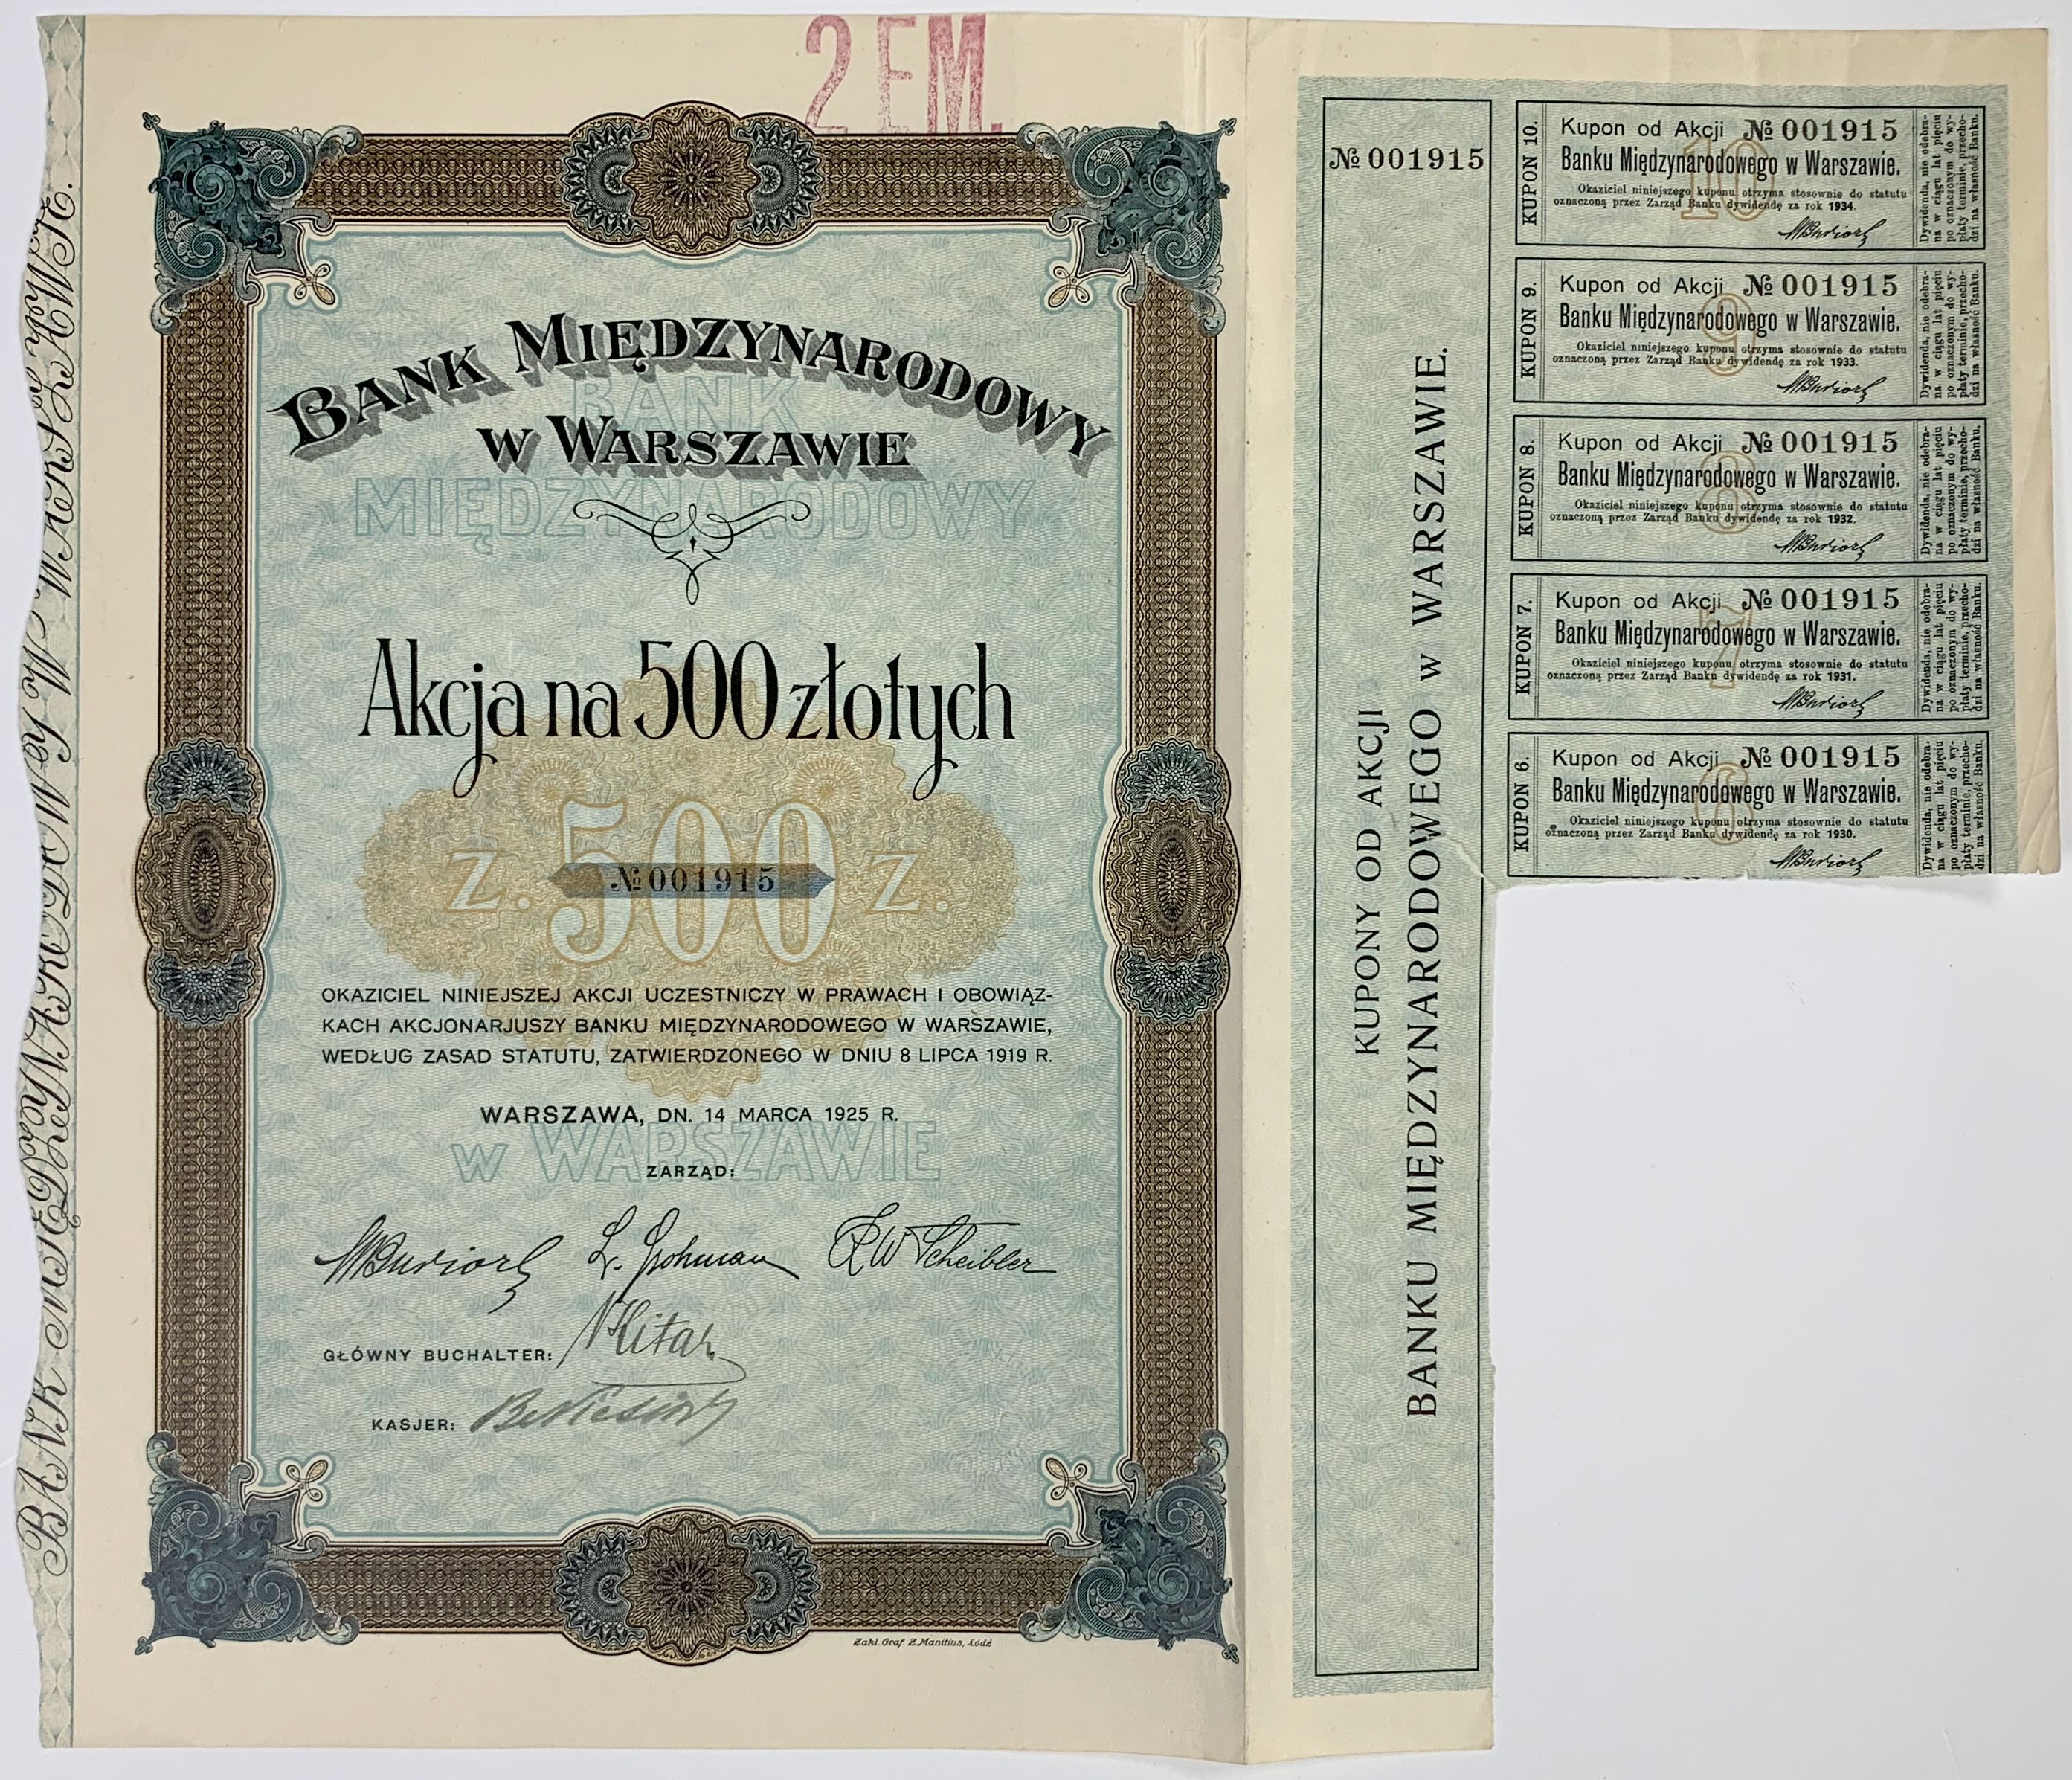 2 EM.
BANK MIĘDZYNARODOWY
W WARSZAWIE
BANK
MIĘDZYNARODOWY
Akcja na 500 złotych
Z. 500 Z.
№ 001915
OKAZICIEL NINIEJSZEJ AKCJI UCZESTNICZY W PRAWACH I OBOWIĄZ-
KACH AKCJONARJUSZY BANKU MIĘDZYNARODOWEGO W WARSZAWIE,
WEDŁUG ZASAD STATUTU, ZATWIERDZONEGO W DNIU 8 LIPCA 1919 R.
WARSZAWA, DN. 14 MARCA 1925 R.
W WARSZAWIE
ZARZĄD:
R W Scheibler
GŁÓWNY BUCHALTER:
KASJER:
Zakł. Graf. Z. Manitius, Łódź
№ 001915
KUPONY OD AKCJI
BANKU MIĘDZYNARODOWEGO W WARSZAWIE.
KUPON 10.
10
Kupon od Akcji № 001915
Banku Międzynarodowego w Warszawie.
Okaziciel niniejszego kuponu otrzyma stosownie do statutu
oznaczoną przez Zarząd Banku dywidendę za rok 1934.
Dywidenda, nie odebra-
na w ciągu lat pięciu
po oznaczonym do wy-
płaty terminie, przecho-
dzi na własność Banku.
KUPON 9.
9
Kupon od Akcji № 001915
Banku Międzynarodowego w Warszawie.
Okaziciel niniejszego kuponu otrzyma stosownie do statutu
oznaczoną przez Zarząd Banku dywidendę za rok 1933.
Dywidenda, nie odebra-
na w ciągu lat pięciu
po oznaczonym do wy-
płaty terminie, przecho-
dzi na własność Banku.
KUPON 8.
8
Kupon od Akcji № 001915
Banku Międzynarodowego w Warszawie.
Okaziciel niniejszego kuponu otrzyma stosownie do statutu
oznaczoną przez Zarząd Banku dywidendę za rok 1932.
Dywidenda, nie odebra-
na w ciągu lat pięciu
po oznaczonym do wy-
płaty terminie, przecho-
dzi na własność Banku.
KUPON 7.
7
Kupon od Akcji № 001915
Banku Międzynarodowego w Warszawie.
Okaziciel niniejszego kuponu otrzyma stosownie do statutu
oznaczoną przez Zarząd Banku dywidendę za rok 1931.
Dywidenda, nie odebra-
na w ciągu lat pięciu
po oznaczonym do wy-
płaty terminie, przecho-
dzi na własność Banku.
KUPON 6.
6
Kupon od Akcji № 001915
Banku Międzynarodowego w Warszawie.
Okaziciel niniejszego kuponu otrzyma stosownie do statutu
oznaczoną przez Zarząd Banku dywidendę za rok 1930.
Dywidenda, nie odebra-
na w ciągu lat pięciu
po oznaczonym do wy-
płaty terminie, przecho-
dzi na własność Banku.